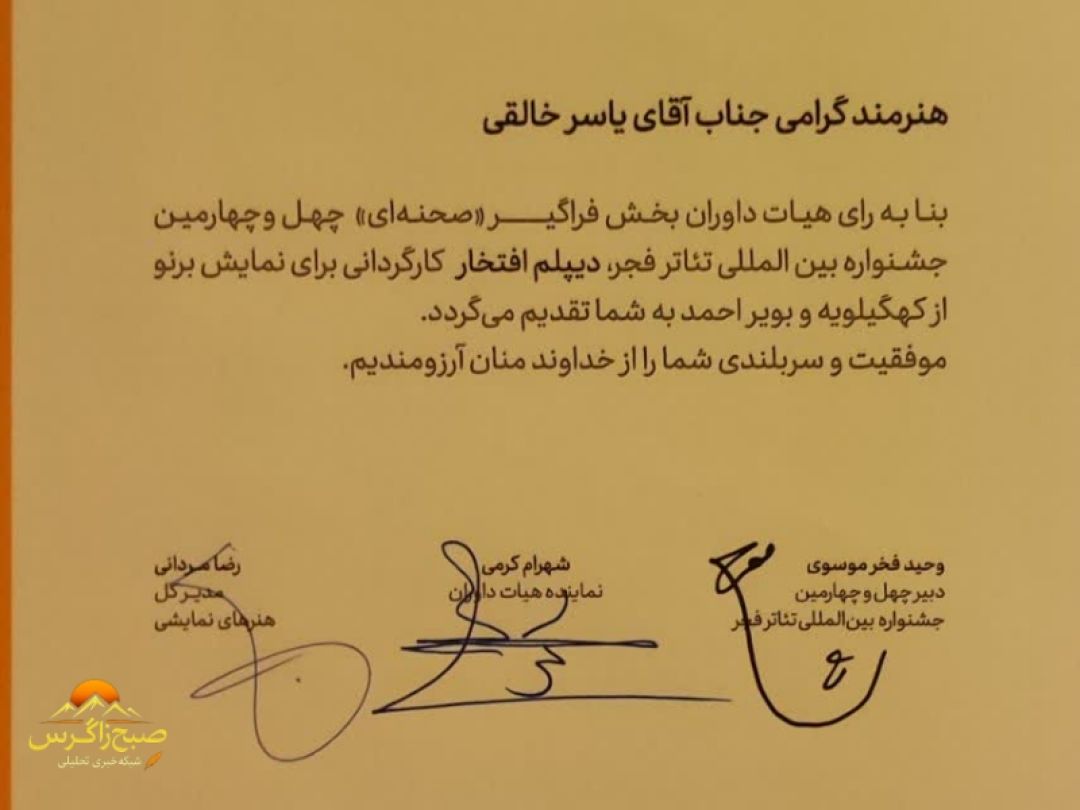 هنرمند گرامی جناب آقای یاسر خالقی
بنا به رای هیات داوران بخش فراگیـــر «صحنه‌ای» چهل و چهارمین
جشنواره بین المللی تئاتر فجر، دیپلم افتخار کارگردانی برای نمایش برنو
از کهگیلویه و بویر احمد به شما تقدیم می‌گردد.
موفقیت و سربلندی شما را از خداوند منان آرزومندیم.
وحید فخر موسوی
دبیر چهل و چهارمین
جشنواره بین‌المللی تئاتر فجر
شهرام کرمی
نماینده هیات داوران
رضا مردانی
مدیر کل
هنرهای نمایشی
صبح زاگرس
شبکه خبری تحلیلی